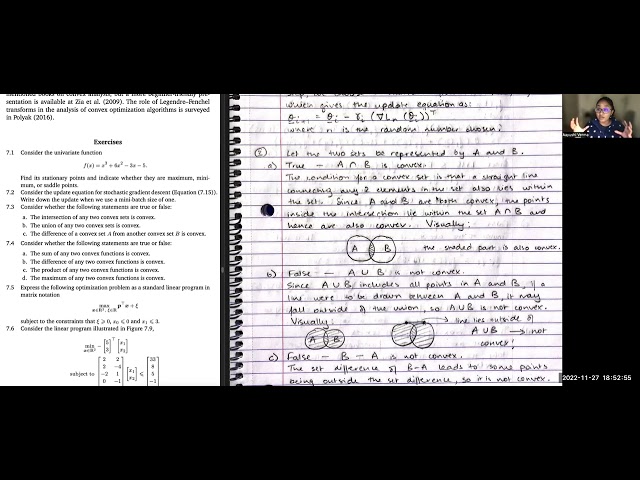 mentioned books on convex analysis, but a more beginner-friendly pre-
sentation is available at Zia et al. (2009). The role of Legendre–Fenchel
transforms in the analysis of convex optimization algorithms is surveyed
in Polyak (2016).
Exercises
7.1 Consider the univariate function
f(x) = x³ + 6x² − 3x − 5.
Find its stationary points and indicate whether they are maximum, mini-
mum, or saddle points.
7.2 Consider the update equation for stochastic gradient descent (Equation (7.15)).
Write down the update when we use a mini-batch size of one.
7.3 Consider whether the following statements are true or false:
a. The intersection of any two convex sets is convex.
b. The union of any two convex sets is convex.
c. The difference of a convex set A from another convex set B is convex.
7.4 Consider whether the following statements are true or false:
a. The sum of any two convex functions is convex.
b. The difference of any two convex functions is convex.
c. The product of any two convex functions is convex.
d. The maximum of any two convex functions is convex.
7.5 Express the following optimization problem as a standard linear program in
matrix notation
max p⊤x + ξ
x∈ℝ², ξ∈ℝ
subject to the constraints that ξ ⩾ 0, x₀ ⩽ 0 and x₁ ⩽ 3.
7.6 Consider the linear program illustrated in Figure 7.9,
min − [5 3]⊤ [x₁ x₂]
x∈ℝ²
subject to [2 2; 2 −4; −2 1; 0 −1] [x₁ x₂] ⩽ [33 8 5 −1
which gives the update equation as:
θi+1 = θi − γi (∇Ln (θi))ᵀ
where n is the random number chosen.
Let the two sets be represented by A and B.
a) True – A ∩ B is convex.
The condition for a convex set is that a straight line
connecting any 2 elements in the set also lies within
the set. Since A and B are both convex, the points
inside the intersection lie within the set A ∩ B and
hence are also convex. Visually:
A B the shaded part is also convex.
b) False – A ∪ B is not convex.
Since A ∪ B includes all points in A and B, if a
line were to be drawn between A and B, it may
fall outside of the union, so A ∪ B is not convex.
Visually: line lies outside of
A B A ∪ B → not
convex!
c) False – B – A is not convex.
The set difference of B-A leads to some points
being outside the set difference, so it is not convex.
Nayushi Verma
2022-11-27 18:52:55